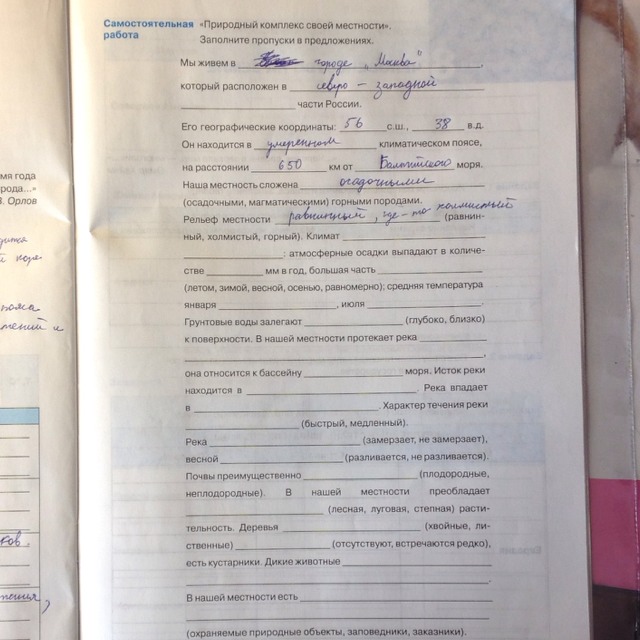 Самостоятельная
работа
«Природный комплекс своей местности».
Заполните пропуски в предложениях.
Мы живем в городе „Москва",
который расположен в северо - западной
части России.
Его географические координаты: 56 с.ш., 38 в.д.
Он находится в умеренном климатическом поясе,
на расстоянии 650 км от Балтийского моря.
Наша местность сложена осадочными
(осадочными, магматическими) горными породами.
Рельеф местности равнинный, где-то холмистый (равнин-
ный, холмистый, горный). Климат
: атмосферные осадки выпадают в количе-
стве мм в год, большая часть
(летом, зимой, весной, осенью, равномерно); средняя температура
января , июля .
Грунтовые воды залегают (глубоко, близко)
к поверхности. В нашей местности протекает река
,
она относится к бассейну моря. Исток реки
находится в . Река впадает
в . Характер течения реки
(быстрый, медленный).
Река (замерзает, не замерзает),
весной (разливается, не разливается).
Почвы преимущественно (плодородные,
неплодородные). В нашей местности преобладает
(лесная, луговая, степная) расти-
тельность. Деревья (хвойные, ли-
ственные) (отсутствуют, встречаются редко),
есть кустарники. Дикие животные
.
В нашей местности есть
(охраняемые природные объекты, заповедники, заказники).
мя года
рода...»
Орлов